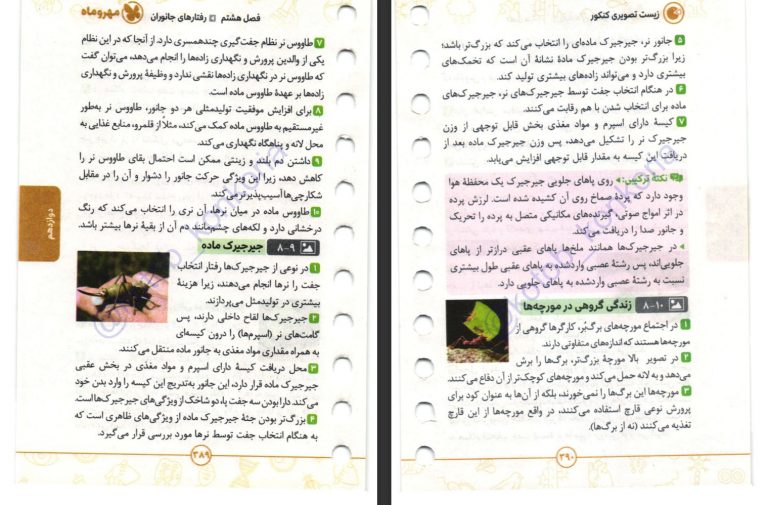 فصل هشتم رفتارهای جانوران مهروماه
۷ طاووس نر نظام جفت‌گیری چندهمسری دارد. از آنجا که در این نظام
یکی از والدین پرورش و نگهداری زاده‌ها را انجام می‌دهد، می‌توان گفت
که طاووس نر در نگهداری زاده‌ها نقشی ندارد و وظیفهٔ پرورش و نگهداری
زاده‌ها بر عهدهٔ طاووس ماده است.
۸ برای افزایش موفقیت تولیدمثلی هر دو جانور، طاووس نر به‌طور
غیرمستقیم به طاووس ماده کمک می‌کند، مثلاً از قلمرو، منابع غذایی به
محل لانه و پناهگاه نگهداری می‌کند.
۹ داشتن دم بلند و زینتی ممکن است احتمال بقای طاووس نر را
کاهش دهد، زیرا این ویژگی حرکت جانور را دشوار و آن را در مقابل
شکارچی‌ها آسیب‌پذیرتر می‌کند.
۱۰ طاووس ماده در میان نرها، آن نری را انتخاب می‌کند که رنگ
درخشانی دارد و لکه‌های چشم‌مانند دم آن از بقیهٔ نرها بیشتر باشد.
۸-۹ جیرجیرک ماده
۱ در نوعی از جیرجیرک‌ها رفتار انتخاب
جفت را نرها انجام می‌دهند، زیرا هزینهٔ
بیشتری در تولیدمثل می‌پردازند.
۲ جیرجیرک‌ها لقاح داخلی دارند، پس
گامت‌های نر (اسپرم‌ها) را درون کیسه‌ای
به همراه مقداری مواد مغذی به جانور ماده منتقل می‌کنند.
۳ محل دریافت کیسهٔ دارای اسپرم و مواد مغذی در بخش عقبی
جیرجیرک ماده قرار دارد، این جانور به‌تدریج این کیسه را وارد بدن خود
می‌کند. دارا بودن سه جفت پا، دو شاخک از ویژگی‌های جیرجیرک‌ها است.
۴ بزرگ‌تر بودن جثهٔ جیرجیرک ماده از ویژگی‌های ظاهری است که
به هنگام انتخاب جفت توسط نرها مورد بررسی قرار می‌گیرد.
۳۸۹
دوازدهم
زیست تصویری کنکور
۵ جانور نر، جیرجیرک ماده‌ای را انتخاب می‌کند که بزرگ‌تر باشد؛
زیرا بزرگ‌تر بودن جیرجیرک مادهٔ نشانهٔ آن است که تخمک‌های
بیشتری دارد و می‌تواند زاده‌های بیشتری تولید کند.
۶ در هنگام انتخاب جفت توسط جیرجیرک‌های نر، جیرجیرک‌های
ماده برای انتخاب شدن با هم رقابت می‌کنند.
۷ کیسهٔ دارای اسپرم و مواد مغذی بخش قابل توجهی از وزن
جیرجیرک نر را تشکیل می‌دهد، پس وزن جیرجیرک ماده بعد از
دریافت این کیسه به مقدار قابل توجهی افزایش می‌یابد.
نکتهٔ ترکیبی: روی پاهای جلویی جیرجیرک یک محفظهٔ هوا
وجود دارد که پردهٔ صماخ روی آن کشیده شده است. لرزش پرده
در اثر امواج صوتی، گیرنده‌های مکانیکی متصل به پرده را تحریک
و جانور صدا را دریافت می‌کند.
در جیرجیرک‌ها همانند ملخ‌ها پاهای عقبی درازتر از پاهای
جلویی‌اند، پس رشتهٔ عصبی واردشده به پاهای عقبی طول بیشتری
نسبت به رشتهٔ عصبی واردشده به پاهای جلویی دارد.
۸-۱۰ زندگی گروهی در مورچه‌ها
۱ در اجتماع مورچه‌های برگ‌بُر، کارگرها گروهی از
مورچه‌ها هستند که اندازه‌های متفاوتی دارند.
۲ در تصویر بالا مورچهٔ بزرگ‌تر، برگ‌ها را برش
می‌دهد و به لانه حمل می‌کند و مورچه‌های کوچک‌تر از آن دفاع می‌کنند.
۳ مورچه‌ها این برگ‌ها را نمی‌خورند، بلکه از آن‌ها به عنوان کود برای
پرورش نوعی قارچ استفاده می‌کنند، در واقع مورچه‌ها از این قارچ
تغذیه می‌کنند (نه از برگ‌ها).
۳۹۰